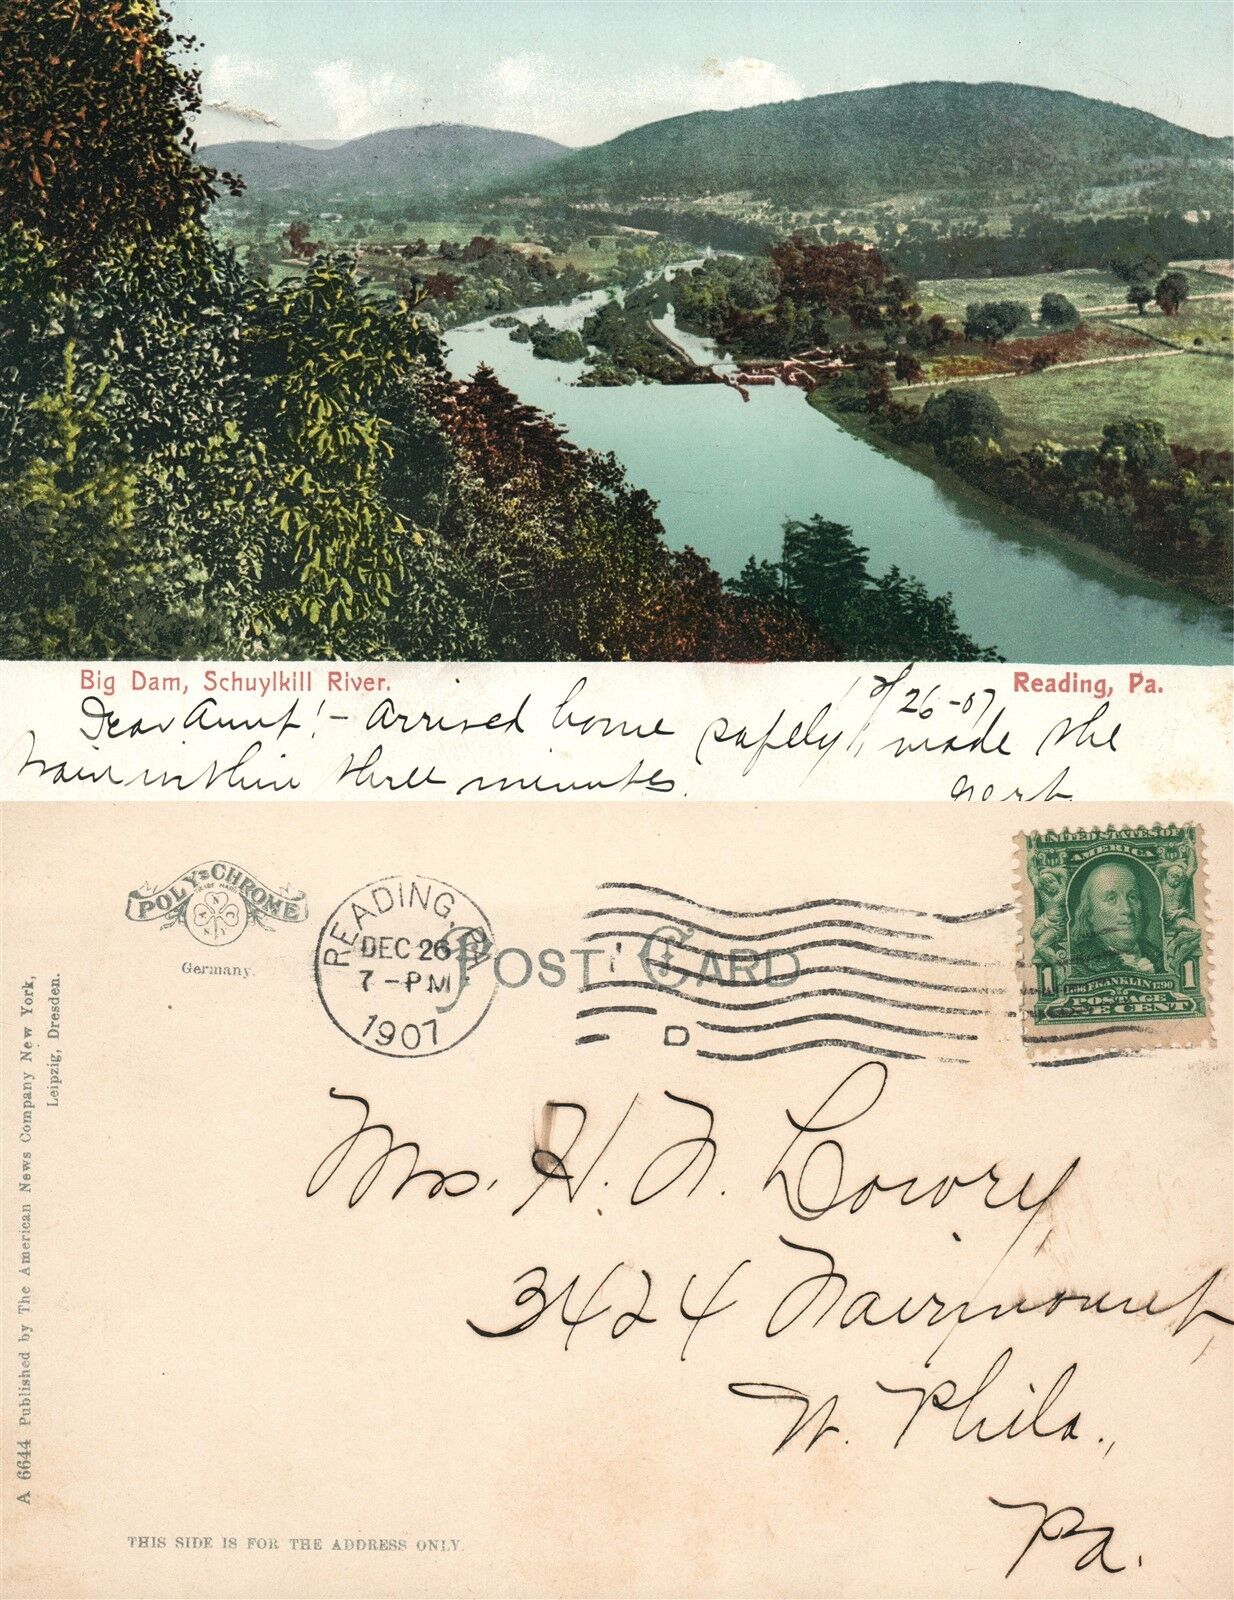 Big Dam, Schuylkill River. Reading, Pa.
26-07
Dear Aunt! - Arrived home safely, made the
train within three minutes.
POLY-CHROME
TRADE MARK
Germany.
READING, PA.
DEC 26
7-PM
1907
POST CARD
D
UNITED STATES OF
AMERICA
1 1
1706 FRANKLIN 1790
POSTAGE
ONE CENT
Mrs. H. F. Lowry,
3424 Fairmount,
W. Phila.,
Pa.
A 6644 Published by The American News Company New York,
Leipzig, Dresden.
THIS SIDE IS FOR THE ADDRESS ONLY.